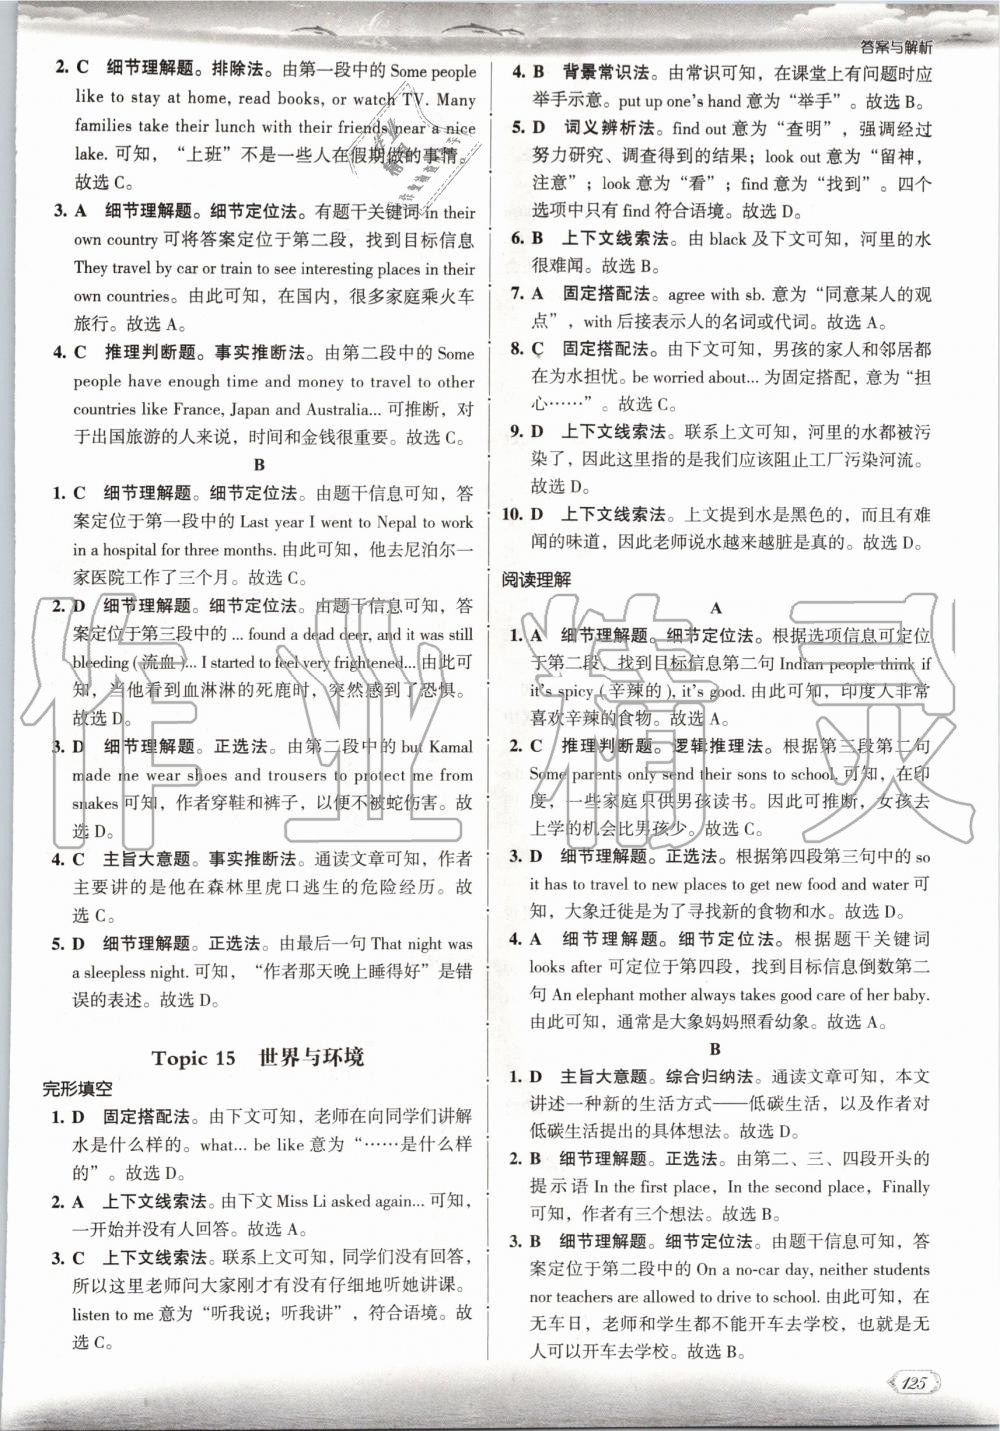 答案与解析
2. C 细节理解题。排除法。由第一段中的 Some people
like to stay at home, read books, or watch TV. Many
families take their lunch with their friends near a nice
lake. 可知，“上班”不是一些人在假期做的事情。
故选 C。
3. A 细节理解题。细节定位法。有题干关键词 in their
own country 可将答案定位于第二段，找到目标信息
They travel by car or train to see interesting places in their
own countries。由此可知，在国内，很多家庭乘火车
旅行。故选 A。
4. C 推理判断题。事实推断法。由第二段中的 Some
people have enough time and money to travel to other
countries like France, Japan and Australia... 可推断，对
于出国旅游的人来说，时间和金钱很重要。故选 C。
B
1. C 细节理解题。细节定位法。由题干信息可知，答
案定位于第一段中的 Last year I went to Nepal to work
in a hospital for three months. 由此可知，他去尼泊尔一
家医院工作了三个月。故选 C。
2. D 细节理解题。细节定位法。由题干信息可知，答
案定位于第三段中的 ... found a dead deer, and it was still
bleeding (流血)... I started to feel very frightened... 由此可
知，当他看到血淋淋的死鹿时，突然感到了恐惧。
故选 D。
3. D 细节理解题。正选法。由第二段中的 but Kamal
made me wear shoes and trousers to protect me from
snakes 可知，作者穿鞋和裤子，以便不被蛇伤害。故
选 D。
4. C 主旨大意题。事实推断法。通读文章可知，作者
主要讲的是他在森林里虎口逃生的危险经历。故
选 C。
5. D 细节理解题。正选法。由最后一句 That night was
a sleepless night. 可知，“作者那天晚上睡得好”是错
误的表述。故选 D。
Topic 15 世界与环境
完形填空
1. D 固定搭配法。由下文可知，老师在向同学们讲解
水是什么样的。what... be like 意为“……是什么样
的”。故选 D。
2. A 上下文线索法。由下文 Miss Li asked again... 可知，
一开始并没有人回答。故选 A。
3. C 上下文线索法。联系上文可知，同学们没有回答，
所以这里老师问大家刚才有没有仔细地听她讲课。
listen to me 意为“听我说；听我讲”，符合语境。故
选 C。
4. B 背景常识法。由常识可知，在课堂上有问题时应
举手示意。put up one's hand 意为“举手”。故选 B。
5. D 词义辨析法。find out 意为“查明”，强调经过
努力研究、调查得到的结果；look out 意为“留神，
注意”；look 意为“看”；find 意为“找到”。四个
选项中只有 find 符合语境。故选 D。
6. B 上下文线索法。由 black 及下文可知，河里的水
很难闻。故选 B。
7. A 固定搭配法。agree with sb. 意为“同意某人的观
点”，with 后接表示人的名词或代词。故选 A。
8. C 固定搭配法。由下文可知，男孩的家人和邻居都
在为水担忧。be worried about... 为固定搭配，意为“担
心……”。故选 C。
9. D 上下文线索法。联系上文可知，河里的水都被污
染了，因此这里指的是我们应该阻止工厂污染河流。
故选 D。
10. D 上下文线索法。上文提到水是黑色的，而且有难
闻的味道，因此老师说水越来越脏是真的。故选 D。
阅读理解
A
1. A 细节理解题。细节定位法。根据选项信息可定位
于第二段，找到目标信息第二句 Indian people think if
it's spicy (辛辣的), it's good. 由此可知，印度人非常
喜欢辛辣的食物。故选 A。
2. C 推理判断题。逻辑推理法。根据第三段第二句
Some parents only send their sons to school. 可知，在印
度，一些家庭只供男孩读书。因此可推断，女孩去
上学的机会比男孩少。故选 C。
3. D 细节理解题。正选法。根据第四段第三句中的 so
it has to travel to new places to get new food and water 可
知，大象迁徙是为了寻找新的食物和水。故选 D。
4. A 细节理解题。细节定位法。根据题干关键词
looks after 可定位于第四段，找到目标信息倒数第二
句 An elephant mother always takes good care of her baby.
由此可知，通常是大象妈妈照看幼象。故选 A。
B
1. D 主旨大意题。综合归纳法。通读文章可知，本文
讲述一种新的生活方式——低碳生活，以及作者对
低碳生活提出的具体想法。故选 D。
2. B 细节理解题。正选法。由第二、三、四段开头的
提示语 In the first place, In the second place, Finally
可知，作者有三个想法。故选 B。
3. B 细节理解题。细节定位法。由题干信息可知，答
案定位于第二段中的 On a no-car day, neither students
nor teachers are allowed to drive to school. 由此可知，在
无车日，老师和学生都不能开车去学校，也就是无
人可以开车去学校。故选 B。
125
作业精灵